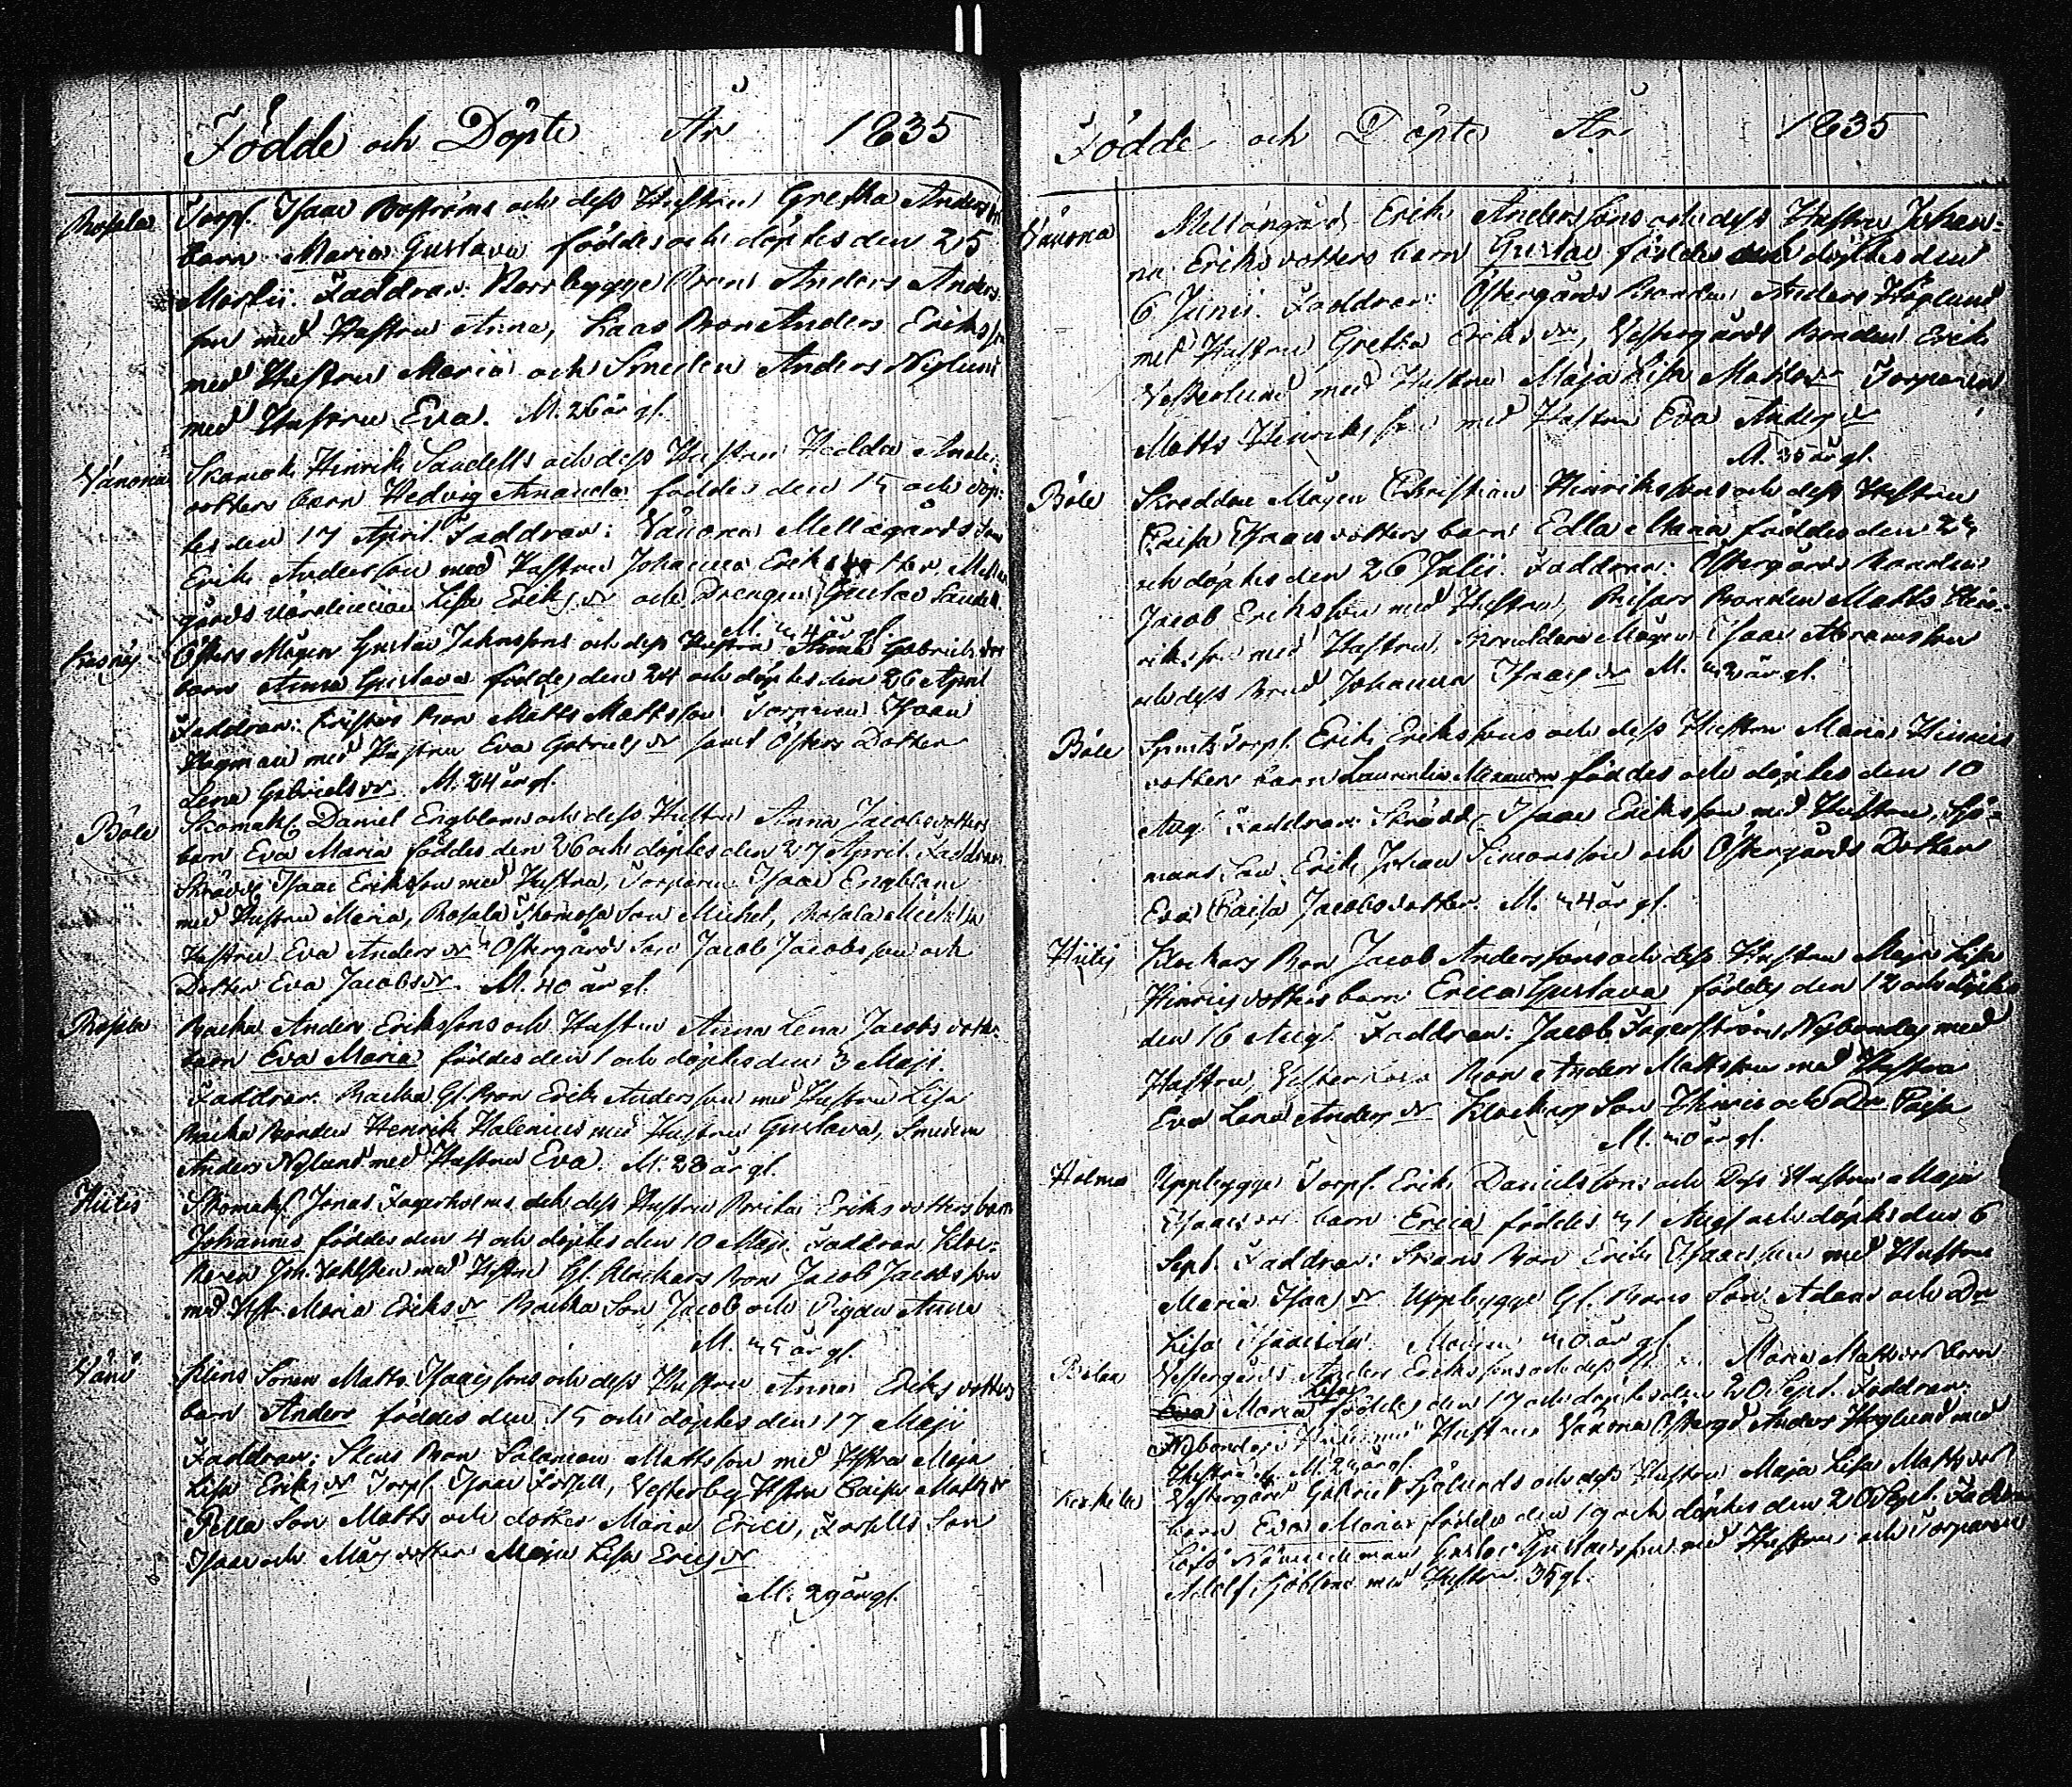 Födde och Döpte År 1835
Rosala Torp. Isaac Boströms och dess Hustru Gretha Anders
barn Maria Gustava föddes och döptes den 25
Martii. Faddrar: Norrbygge Bon Anders Anders
son med Hustru Anna, Laas Bon Anders Eriks son
med Hustru Maria och Smeden Anders Nylund
med Hustru Eva. M. 26 år gl.
Vånoria Skomak Hinrik Sandells och dess Hustru Hedda Anders
dotters barn Hedvig Amanda föddes den 15 och döp
tes den 17 April Faddrar: Vånoria Mellagårds
Erik Andersson med Hustru Johanna Eriksdotter, Mellan
gårds värdinnan Lisa Eriks dr och Drengen Gustav Sandell.
M. 24 år gl.
Östers Mågen Gustav Johnssons och dess Hustru Anna Gabriels dr
barn Anna Gustava föddes den 24 och döptes den 26 April
Faddrar: Bon Matts Mattsson Torparen Isaac
Hagman med Hustru Eva Gabriels dr samt Östers Dotter
Lena Gabriels dr. M. 24 år gl.
Böle Skomak Daniel Engbloms och dess Hustru Anna Jacobsdotters
barn Eva Maria föddes den 26 och döptes den 27 April. Faddrar
Skrädd Isaac Eriksson med Hustru, Torparen Isaac Engblom
med Hustru Maria, Rosala Thomasa Son Michel, Rosala Michels
Hustru Eva Anders dr Östergårds Son Jacob Jacobsson och
Dotter Eva Jacobs dr. M. 40 år gl.
Rosala Backa Anders Erikssons och Hustru Anna Lena Jacobs dotters
barn Eva Maria föddes den 1 och döptes den 3 Maji.
Faddrar Backa Gl. Bon Erik Andersson med Hustru Lisa
Backa Bonden Henrik Halenius med Hustru Gustava, Smeden
Anders Nylund med Hustru Eva. M. 28 år gl.
Hitis Skomak Jonas Fagerholms och dess Hustru Brita Eriks dotters barn
Johannes föddes den 4 och döptes den 10 Maji. Faddrar Kloc-
karen Joh. med Hustru Gl. Klockars Bon Jacob Jacobsson
med Hustr. Maria Eriks dr Backa Son Jacob och Pigan Anna
M. år gl.
Vänö Sonen Matts Isaacssons och dess Hustru Anna Eriks dotters
barn Anders föddes den 15 och döptes den 17 Maji
Faddrar: Bon Salomon Mattsson med Hustru Maja
Lisa Eriks dr Torp. Isaac Forsell, Vesterby Hustru Caisa Matts dr
Pella Son Matts och dotter Maria Erici, Forsells Son
Isaac och Mågs dotter Maja Lisa Erics dr
M. 29 år gl.
Födde och Döpte År 1835
Vånoria Mellangårds Erik Anderssons och dess Hustru Johan-
na Eriksdotters barn Gustav föddes och döptes den
6 Junii. Faddrar: Östergårds Bonden Anders Höglund
med Hustru Gretha Eriks dr, Vestergårds Bonden Erik
Vesterlund med Hustru Maja Lisa Matts dr Torparen
Matts Hinriksson med Hustru Eva Anders dr
M. 35 år gl.
Böle Skreddare Mågen Christian Hinrikssons och dess Hustru
Caisa Isaacsdotters barn Edla Maria föddes den 25
och döptes den 26 Julii. Faddrar: Östergårds Bonden
Jacob Eriksson med Hustru, Bisars Bonden Matts Hin-
riksson med Hustru, Skreddare Mågen Isaac Abramsson
och dess Brud Johanna Isaacs dr M. år gl.
Böle Torp. Erik Erikssons och dess Hustru Maria Hinrics
dotters barn föddes och döptes den 10
Aug. Faddrar: Skrädd. Isaac Eriksson med Hustru, Sjö-
mans Son Erik Johan Simonsson och Östergårds Dotter
Eva Caisa Jacobsdotter. M. år gl.
Hitis Klockars Bon Jacob Anderssons och dess Hustru Maja Lisa
Hinricsdotters barn Erica Gustava föddes den 12 och döptes
den 16 Aug. Faddrar: Jacob Fagerström, med
Hustru, Bon Anders Mattsson med Hustru
Eva Lena Anders dr Klockars Son Hinric och Dr Caisa
M. år gl.
Holma Uppbygge Torp. Erik Danielssons och Dess Hustru Maja
Isaacs dr barn Erica föddes Aug. och döptes den 6
Sept. Faddrar: Bon Erik Isaacsson med Hustru
Maria Isaacs dr Uppbygge Gl. Bons Son Adam och Dr
Lisa år gl.
Vestergårds Anders Erikssons och dess Maria Matts dr barn
Maria Lisa föddes den 17 och döptes den 20 Sept. Faddrar:
Hustru Vånoria Östergd Anders Höglund med
Hustru. M. år gl.
Vestergård Gabriel Sjölunds och dess Hustru Maja Lisa Matts dr
barn Eva Maria föddes den 19 och döptes den 20 Sept. Faddrar
Gustav Gustavsson med Hustru, och Torparen
Adolf Sjöblom med Hustru. 35 gl.